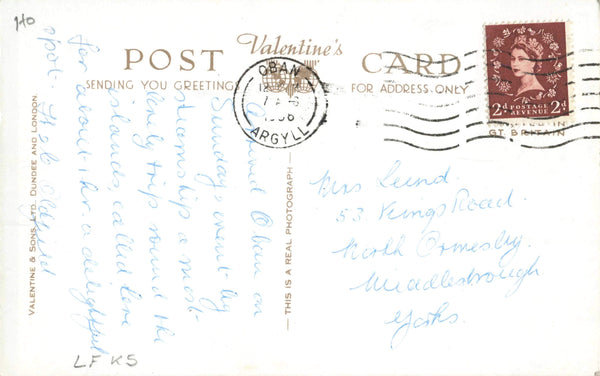 Ho
POST Valentine's CARD
SENDING YOU GREETINGS
FOR ADDRESS ONLY
OBAN
1956
ARGYLL
2D POSTAGE REVENUE 2D
IN
GT. BRITAIN
Oban on
Sunday, went by
steamship a most
lovely trip round the
islands, called here
for about 1 hr. a delightful
spot.
VALENTINE & SONS, LTD. DUNDEE AND LONDON.
— THIS IS A REAL PHOTOGRAPH —
Mrs
53 Kings Road.
North Ormesby.
Middlesbrough
Yorks.
LF KS